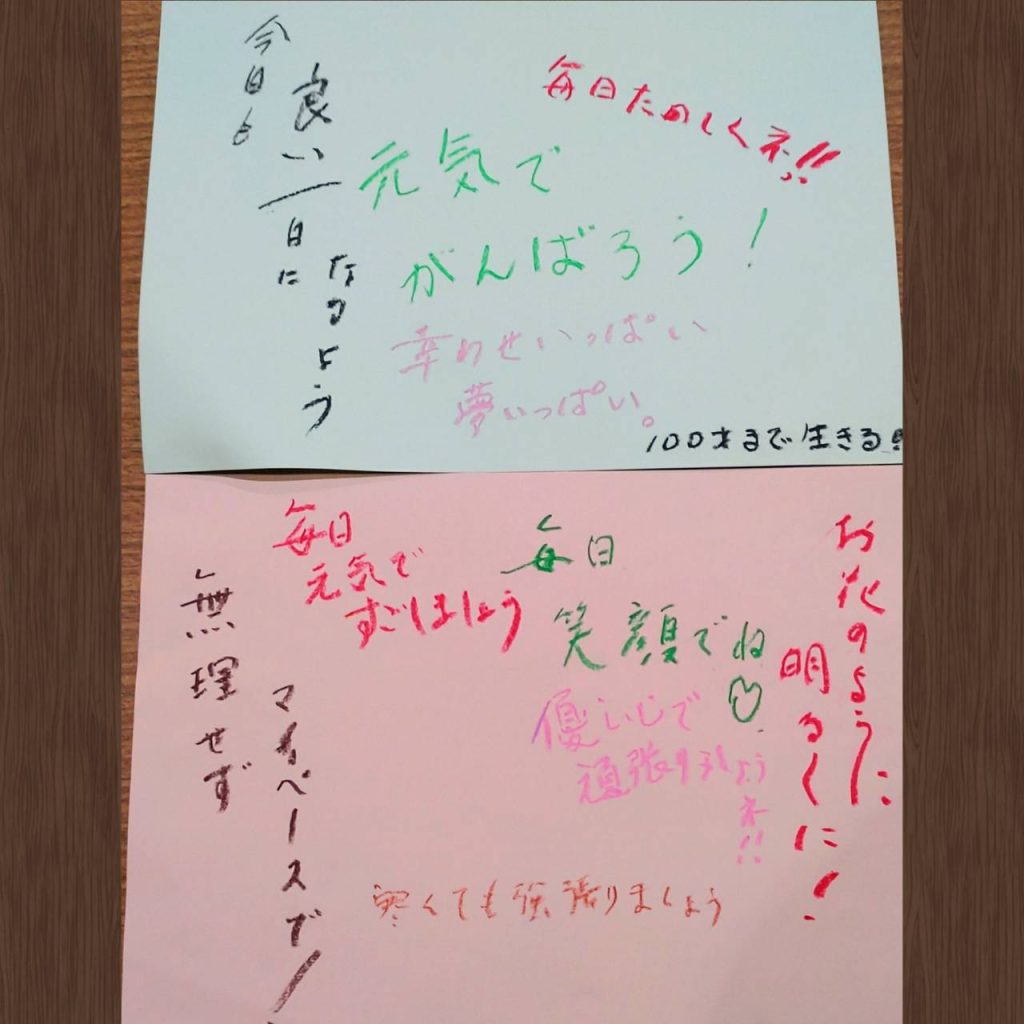 今日も
良い一日に
なるよう
毎日たのしくネ!!
元気で
がんばろう!
幸わせいっぱい
夢いっぱい。
100才まで生きる!
毎日
元気で
すごしましょう
毎日
笑顔でね
お花のように
明るくに!
無理せず
マイペースで!
優しい心で
頑張りましょう
ネ!!
寒くても頑張りましょう